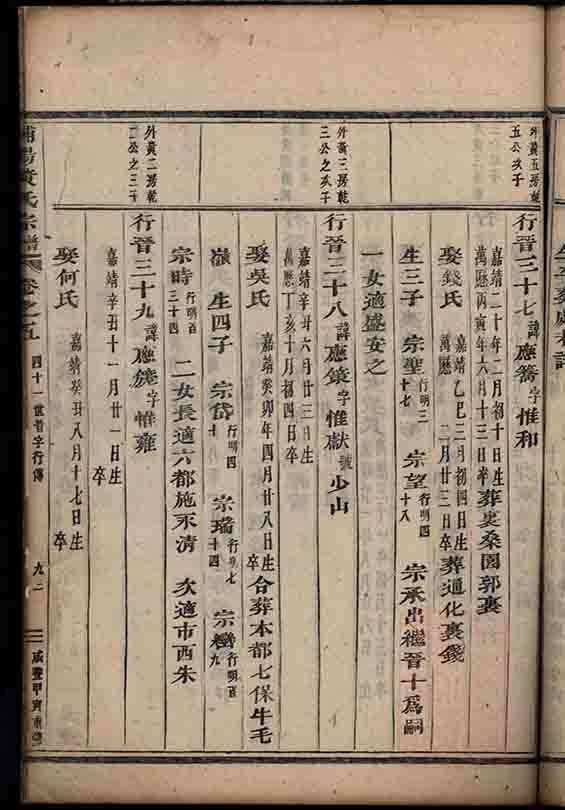 外黃五房乾
五公次子
行晉三十七 諱應奮字惟和
嘉靖二十年二月初十日生
萬歷丙寅年六月十三日卒 葬裏桑園郭裏
娶錢氏 嘉靖乙巳三月初四日生
萬歷 二月廿三日卒 葬通化裏錢
生三子 宗聖 行明三十七 宗望 行明四十八 宗承出繼晉十爲嗣
一女適盛安之
外黃三房乾
三公之次子
行晉三十八 諱應 字惟獻號少山
嘉靖辛丑六月廿三日生
萬歷丁亥十月初四日卒
娶吳氏 嘉靖癸卯年四月廿八日生
卒 合葬本都七保牛毛
嶺 生四子 宗岱 行明四十 宗瑞 行明七十四 宗 行明百九
宗時 行明百三十四 二女長適六都施永清 次適市西朱
外黃二房乾
二公之三子
行晉三十九 諱應 字惟雍
嘉靖辛丑十一月廿一日生
卒
娶何氏 嘉靖癸丑八月十七日生
卒
浦陽黃氏宗譜 卷之五 四十一世晉字行傳 九二 咸豐甲寅重